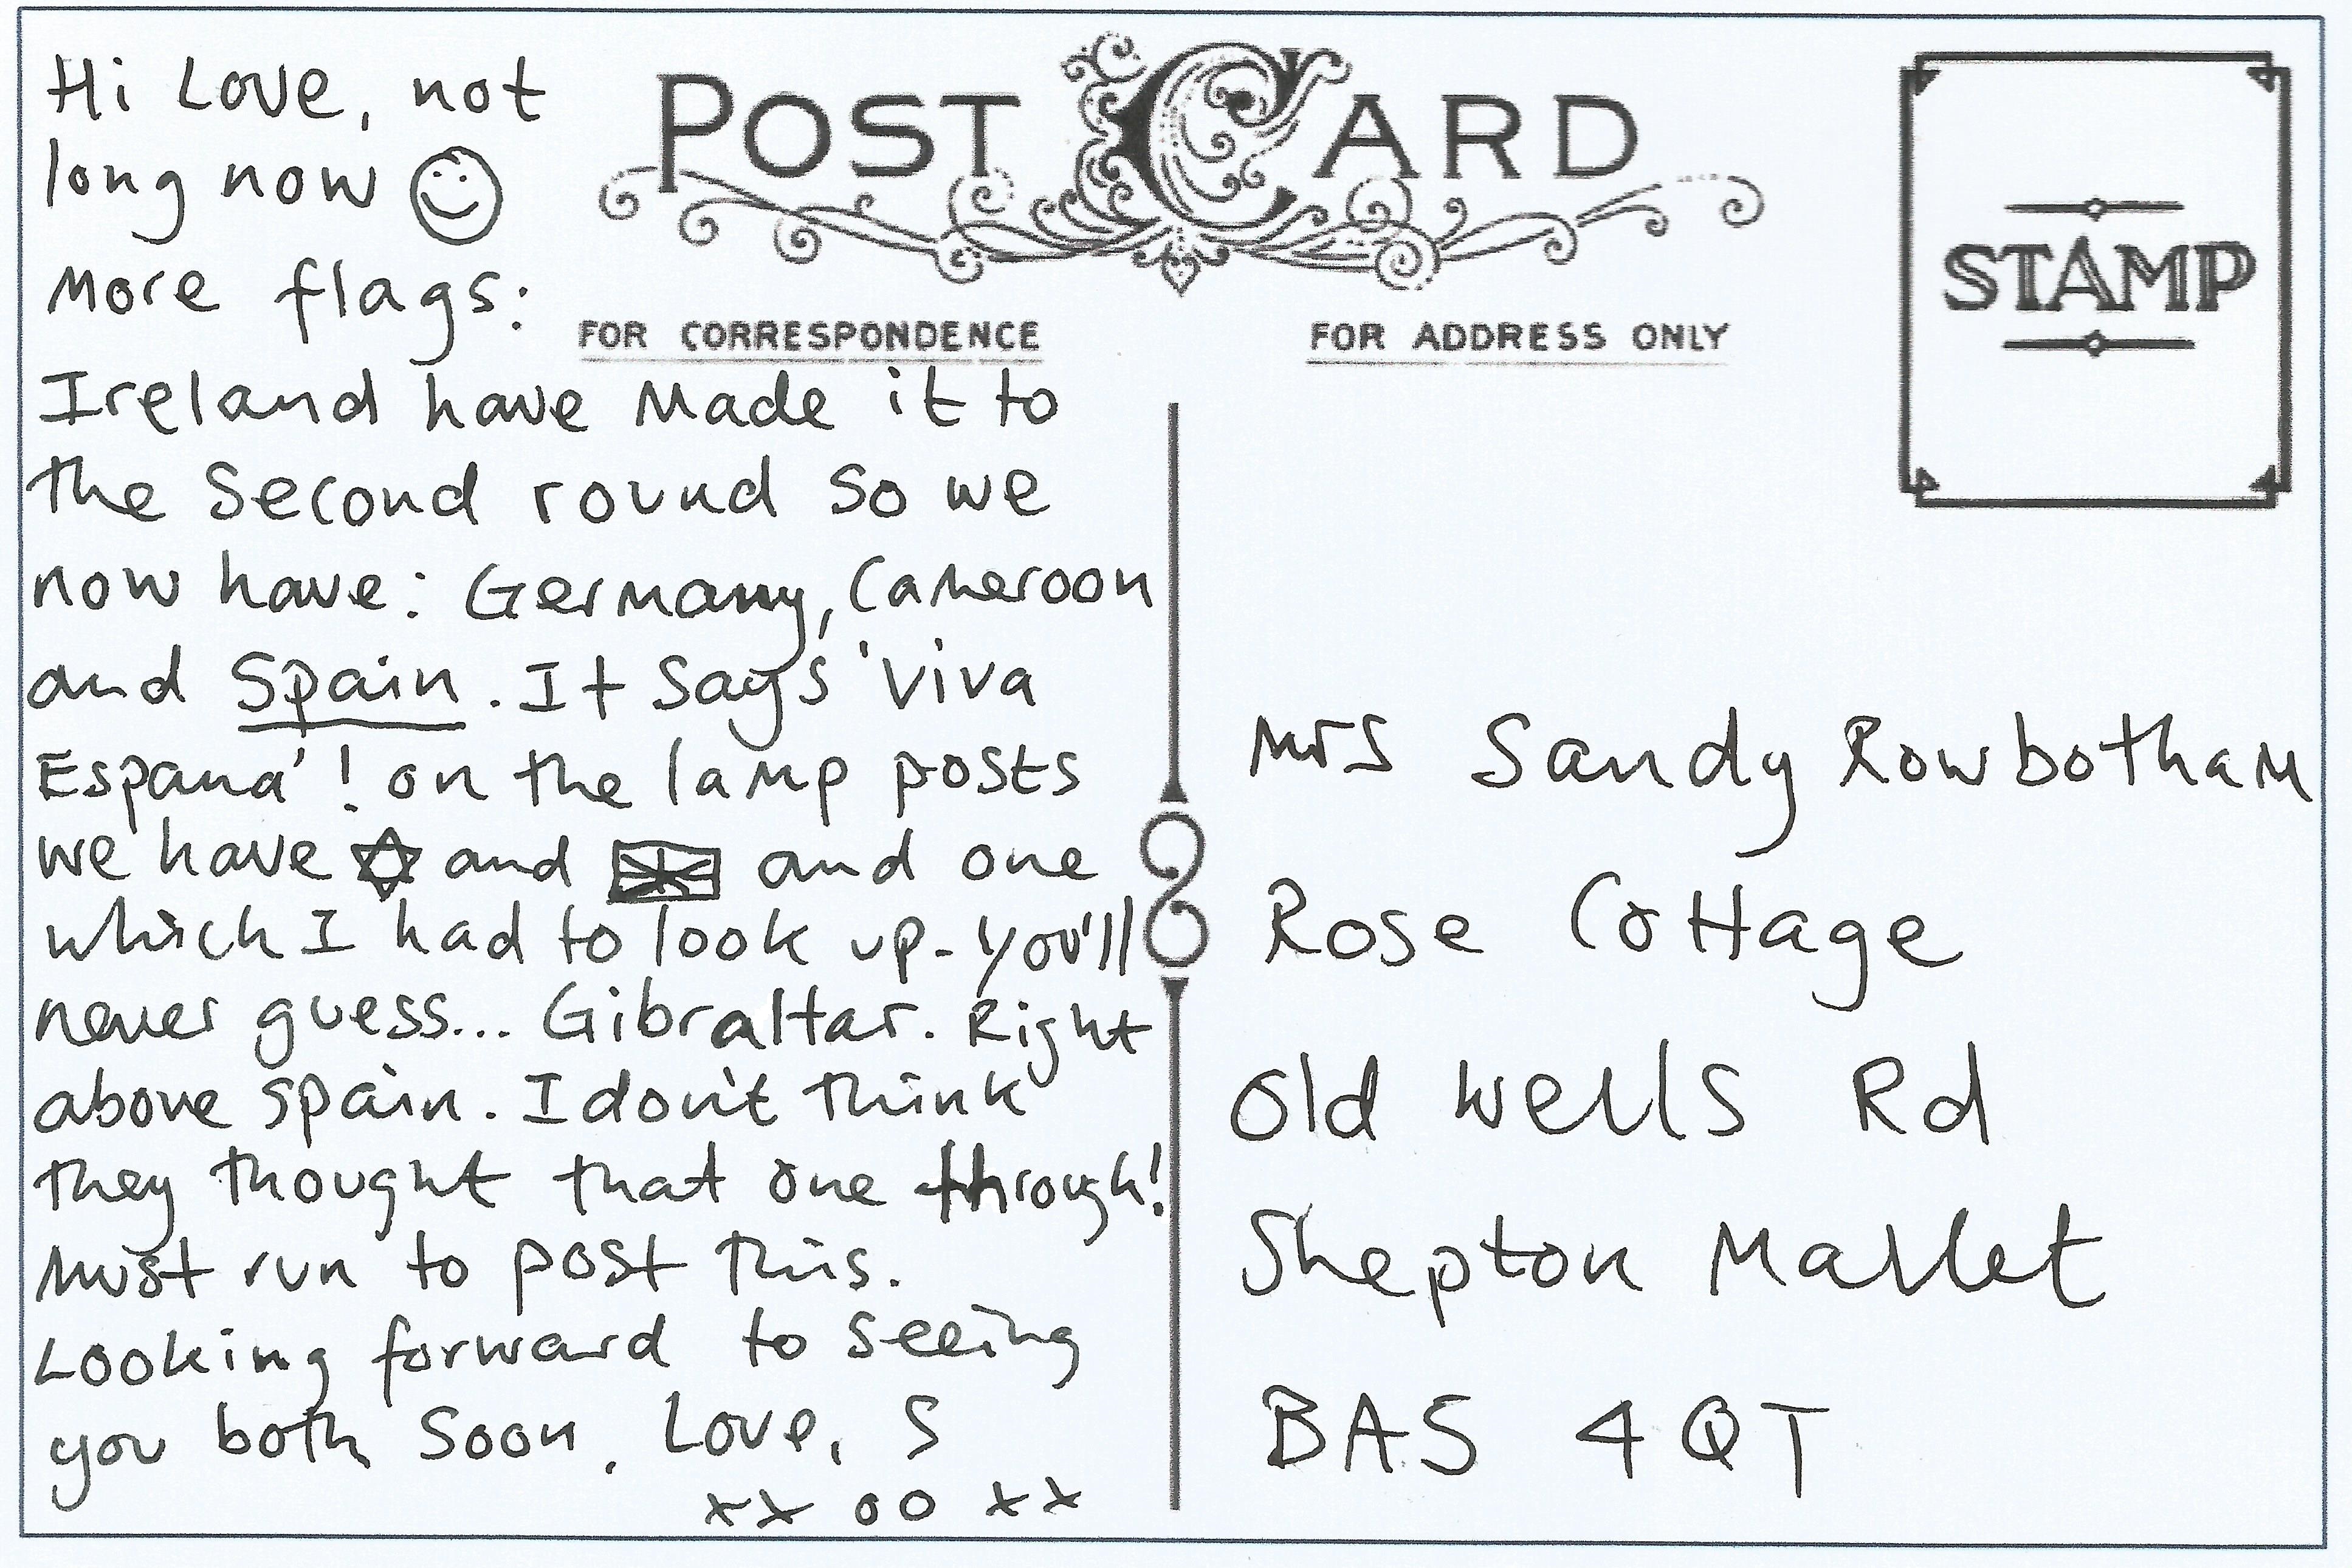 Hi Love, not
long now
More flags:
POST CARD
FOR CORRESPONDENCE
FOR ADDRESS ONLY
STAMP
Ireland have Made it to
the Second round so we
now have: Germany, Cameroon
and Spain. It says 'Viva
Espana'! on the lamp posts
we have and and one
which I had to look up - you'll
never guess... Gibraltar. Right
above Spain. I don't think
they thought that one through!
Must run to post this.
Looking forward to seeing
you both soon. Love, S
xx oo xx
Mrs Sandy Rowbotham
Rose Cottage
Old Wells Rd
Shepton Mallet
BAS 4QT